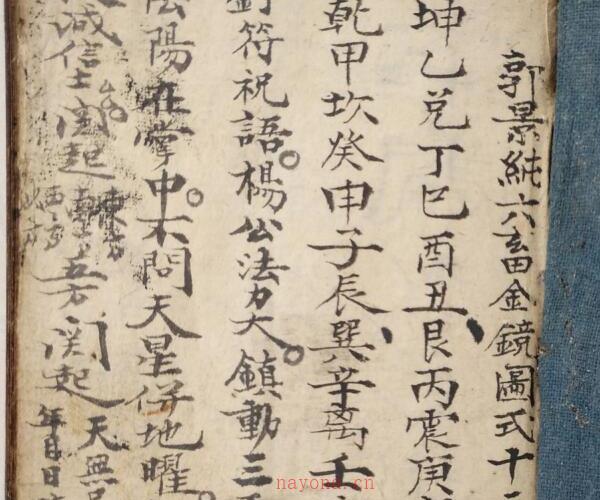 郭景純六畜金鏡圖式十
坤乙兌丁巳酉丑艮丙震庚
乾甲坎癸申子辰巽辛萬千
符祝語。楊公法力大。鎮動三
陽在掌中。不問天星併地曜。
誠信士 起 五方 起 天無
年月日
nayona.cn